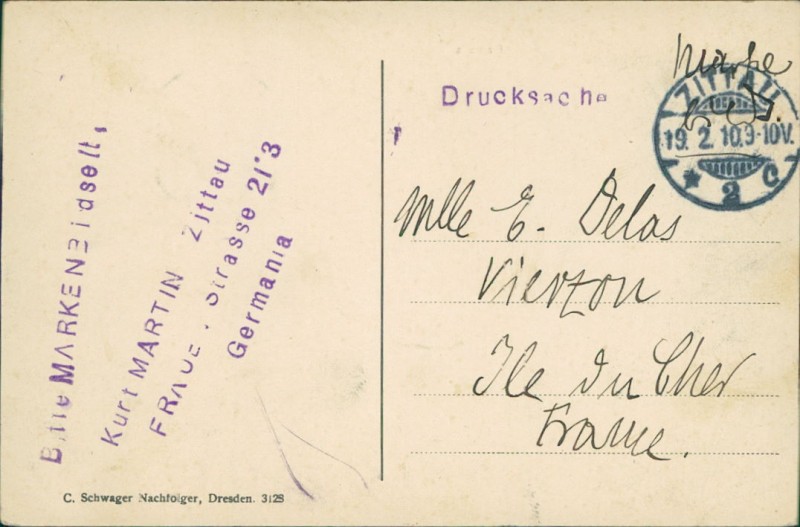 Bitte MARKENBidseit,
Kurt MARTIN Zittau
FRAUE . Strasse 21*3
Germania
C. Schwager Nachfolger, Dresden. 3128
Drucksache
Marke
ZITTAU
19. 2. 10.9-10V.
* 2 c
Mlle E. Delas
Vierzon
Ile du Cher
France.